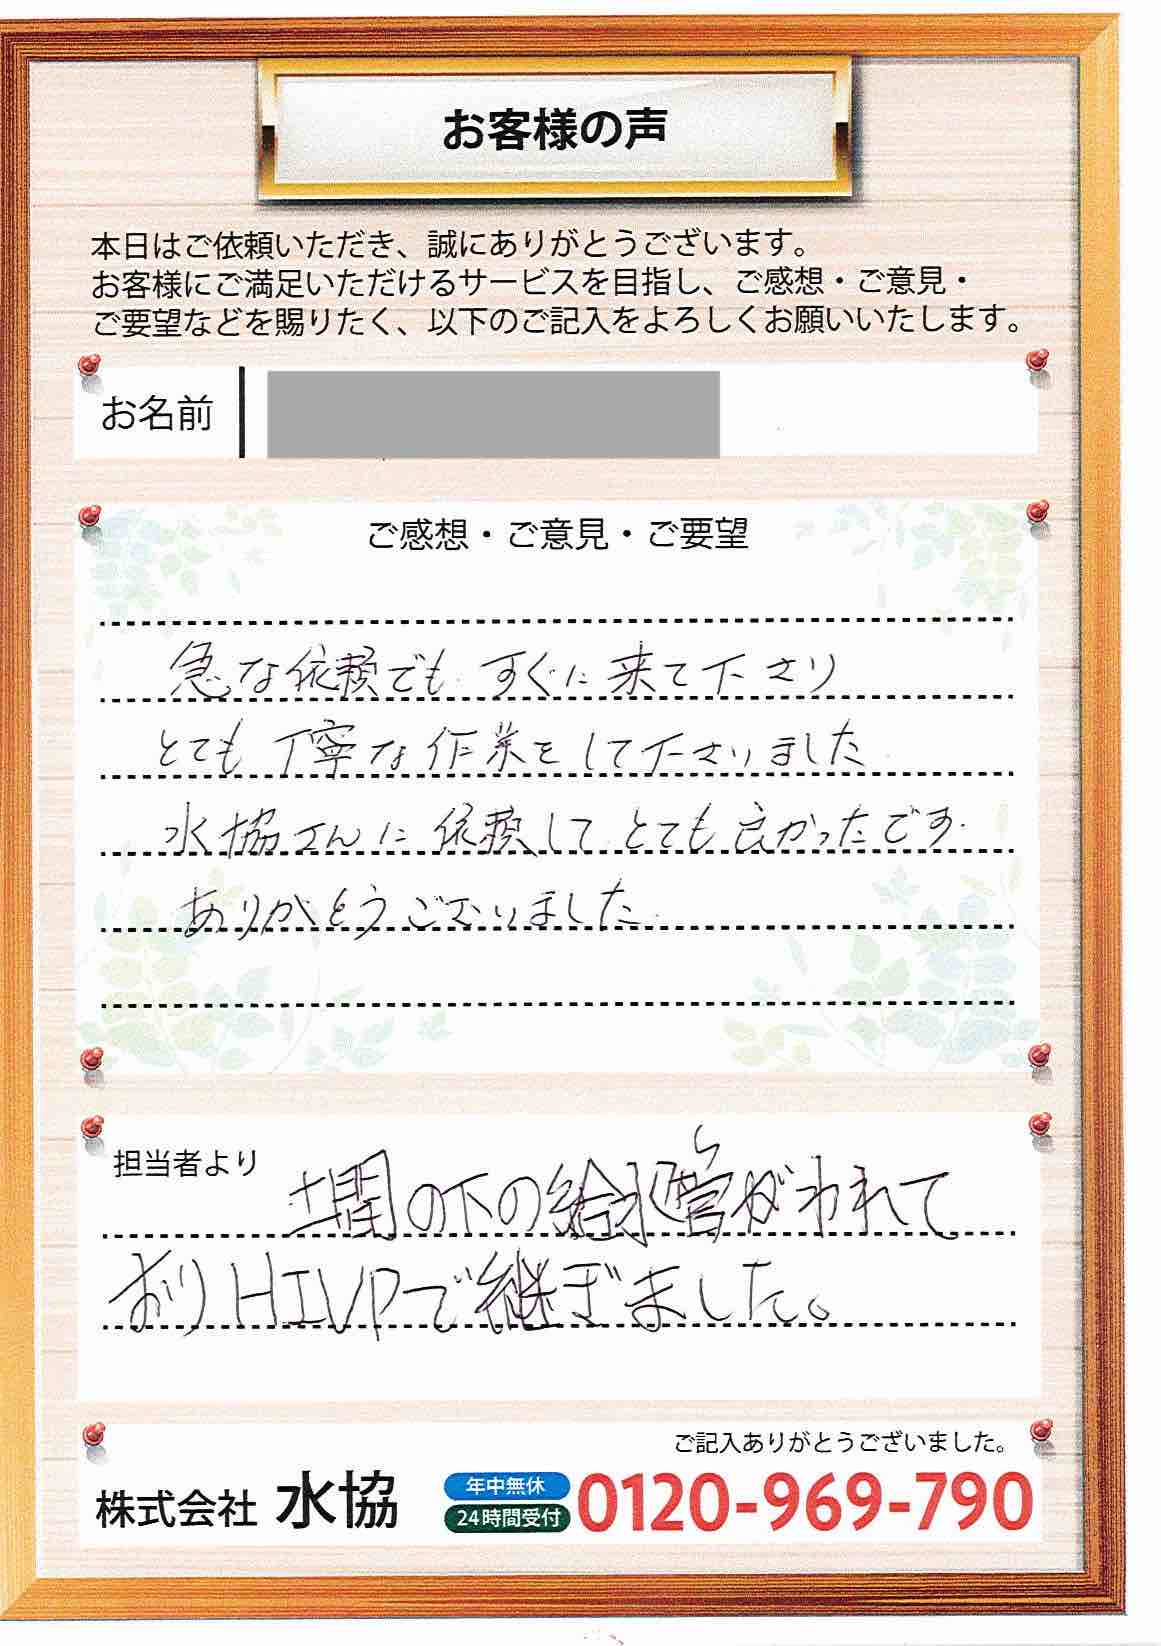 お客様の声
本日はご依頼いただき、誠にありがとうございます。
お客様にご満足いただけるサービスを目指し、ご感想・ご意見・
ご要望などを賜りたく、以下のご記入をよろしくお願いいたします。
お名前
ご感想・ご意見・ご要望
急な依頼でも すぐに 来て下さり
とても 丁寧な 作業をして下さいました
水協さんに 依頼して とても良かったです.
ありがとうございました.
担当者より
土間の下の給水管がわれて
おりHIVPで継ぎました。
ご記入ありがとうございました。
株式会社 水協 年中無休 24時間受付 0120-969-790